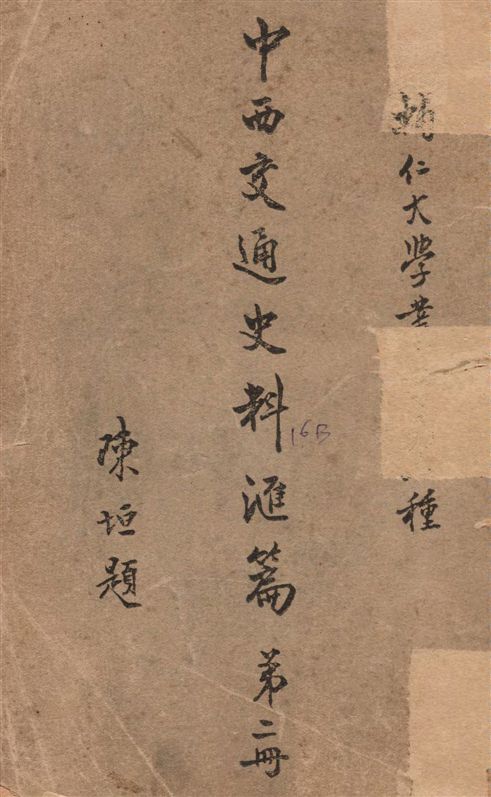 輔仁大學叢
種
中西交通史料滙篇 第二冊
16B
陳垣題